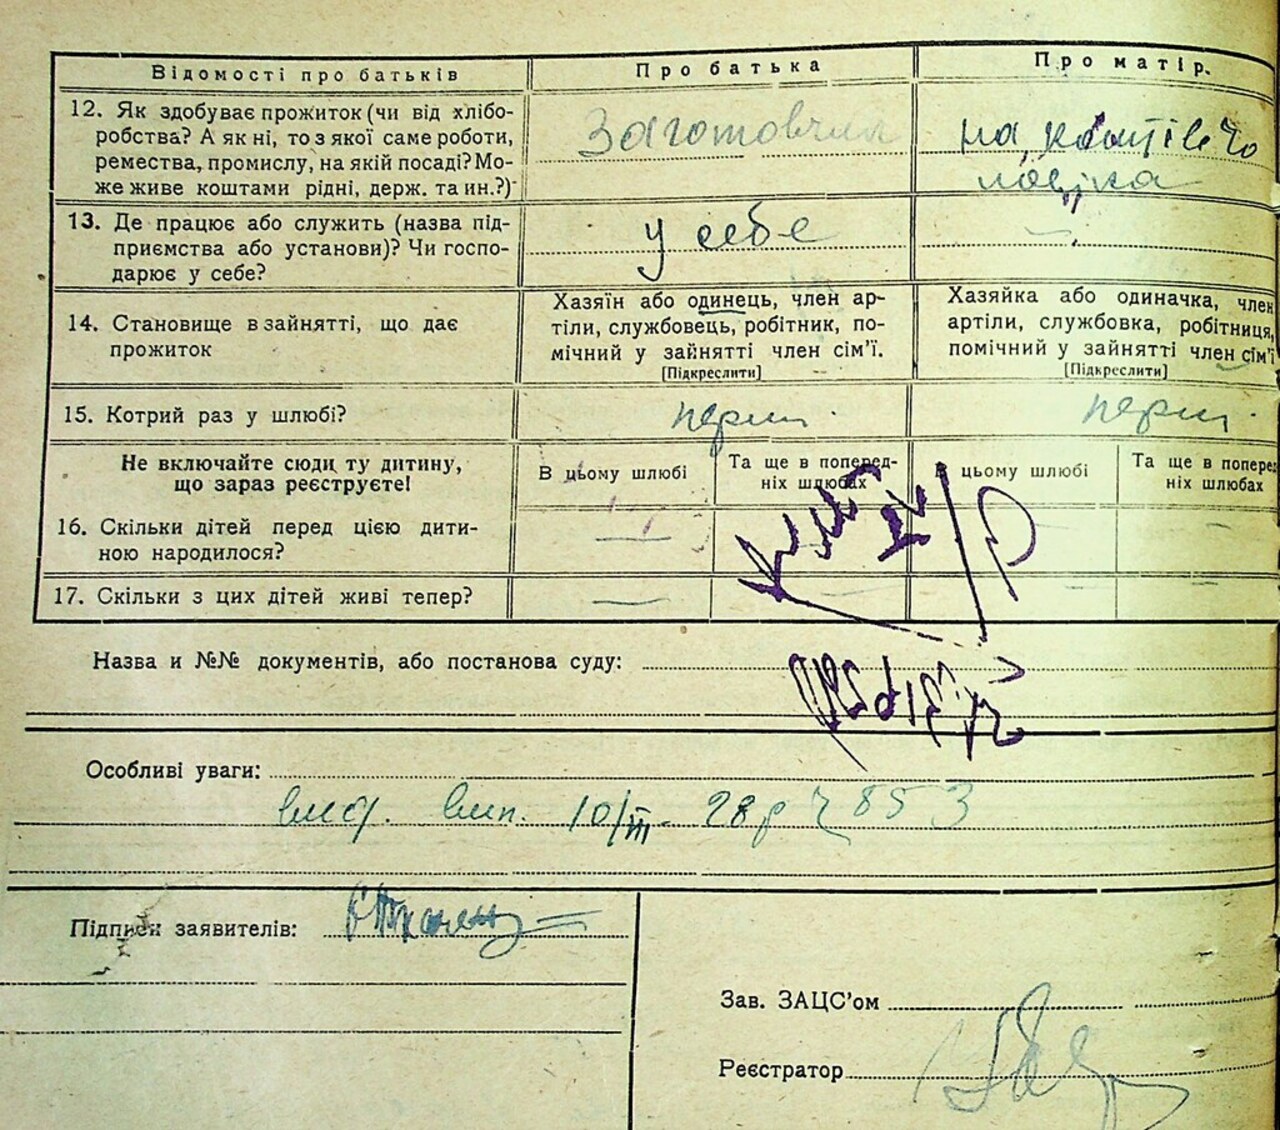 Відомості про батьків
Про батька
Про матір.
12. Як здобуває прожиток (чи від хлібо-
робства? А як ні, то з якої саме роботи,
ремества, промислу, на якій посаді? Мо-
же живе коштами рідні, держ. та ин.?)
Заготовчик
на коштів чо
ловіка
13. Де працює або служить (назва під-
приємства або установи)? Чи госпо-
дарює у себе?
у себе
—
14. Становище в зайнятті, що дає
прожиток
Хазяїн або одинець, член ар-
тіли, службовець, робітник, по-
мічний у зайнятті член сім’ї.
[Підкреслити]
Хазяйка або одиначка, член
артіли, службовка, робітниця,
помічний у зайнятті член сім’ї
[Підкреслити]
15. Котрий раз у шлюбі?
перш.
перш.
Не включайте сюди ту дитину,
що зараз реєструєте!
В цьому шлюбі
Та ще в поперед-
ніх шлюбах
В цьому шлюбі
Та ще в попере
ніх шлюбах
16. Скільки дітей перед цією дити-
ною народилося?
—
—
17. Скільки з цих дітей живі тепер?
—
Назва и №№ документів, або постанова суду:
Особливі уваги:
10/III 28 р 853
Підписи заявителів:
Зав. ЗАЦС’ом
Реєстратор